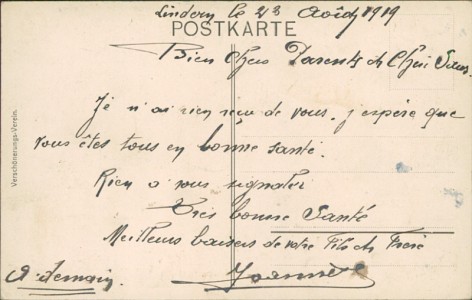 Lindern le 23 Août 1919
POSTKARTE
Bien Chers Parents et Chère Sœur
Je n'ai rien reçu de vous. j'espère que
vous êtes tous en bonne santé.
Rien a vous signaler
Très bonne Santé
Meilleurs baisers de votre Fils et Frère
A demain.
Verschönerungs-Verein.